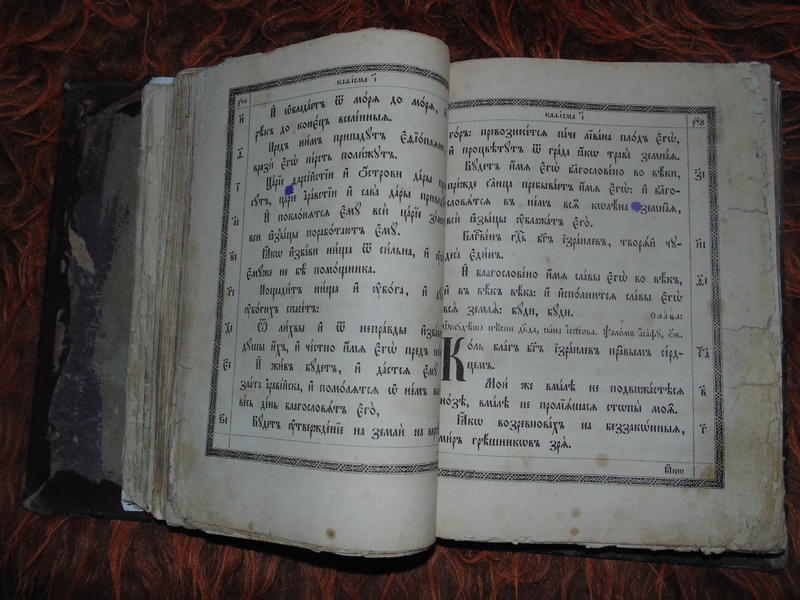 каѳісма і҃
рч҃ѕ
и҃ И҆ ѡ҆блада́етъ ѿ мо́рѧ до мо́рѧ,
рѣ́къ до коне́цъ вселе́нныѧ.
ѳ҃ Пред̾ ни́мъ припаду́тъ є҆ѳіо́плѧне,
вразѝ є҆гѡ̀ пе́рсть поли́жутъ.
і҃ Ца́рїе ѳарсі́йстїи и҆ ѻ҆́строви да́ры
су́тъ, ца́рїе а҆ра́встїи и҆ сава̀ да́ры
а҃і И҆ покло́нѧтсѧ є҆мꙋ̀ всѝ ца́рїе
всѝ ꙗ҆зы́цы порабо́таютъ є҆мꙋ̀.
в҃і Ꙗ҆́кѡ и҆зба́ви ни́ща ѿ си́льна, и҆
є҆мꙋ́же не бѣ̀ помо́щника.
г҃і Пощади́тъ ни́ща и҆ ᲂу҆бо́га, и҆
ᲂу҆бо́гихъ спасе́тъ:
д҃і Ѿ ли́хвы и҆ ѿ непра́вды
дꙋ́шы и҆́хъ, и҆ че́стно и҆́мѧ є҆гѡ̀ пред̾
є҃і И҆ жи́въ бꙋ́детъ, и҆ да́стсѧ є҆мꙋ̀
зла́та а҆раві́йска, и҆ помо́лѧтсѧ ѡ҆ не́мъ
ве́сь де́нь благословѧ́тъ є҆го̀,
ѕ҃і Бꙋ́детъ ᲂу҆твержде́нїе на землѝ на
каѳісма і҃
рч҃з
го́ръ: превознесе́тсѧ па́че лїва́на пло́дъ є҆гѡ̀,
и҆ процвѣтꙋ́тъ ѿ гра́да ꙗ҆́кѡ трава̀ земна́ѧ.
з҃і Бꙋ́детъ и҆́мѧ є҆гѡ̀ благослове́но во вѣ́ки,
пре́жде со́лнца пребыва́етъ и҆́мѧ є҆гѡ̀: и҆ благо-
словѧ́тсѧ в̾ не́мъ всѧ̑ кѡлѣ́на земна́ѧ,
всѝ ꙗ҆зы́цы ᲂу҆блажа́тъ є҆го̀.
и҃і Блгⷭ҇ве́нъ гдⷭ҇ь бг҃ъ і҆зра́илевъ, творѧ́й чу-
деса̀ є҆ди́нъ.
ѳ҃і И҆ благослове́но и҆́мѧ сла́вы є҆гѡ̀ во вѣ́къ,
и҆ в̾ вѣ́къ вѣ́ка: и҆ и҆спо́лнитсѧ сла́вы є҆гѡ̀
всѧ̀ землѧ̀: бꙋ́ди, бꙋ́ди. сла́ва:
пѣ́сни дв҃да, сы́на і҆ессе́ова. ѱало́мъ а҆са́фꙋ, ѻ҃в.
а҃ Ко́ль бла́гъ бг҃ъ і҆зра́илевъ пра̑вымъ се́рд-
цемъ.
в҃ Мои́ же вма́лѣ не подвижа́стѣсѧ
но́зѣ, вма́лѣ не пролїѧ́шасѧ стѡпы̀ моѧ̑.
г҃ Ꙗ҆́кѡ возревнова́хъ на беззакѡ́нныѧ,
ми́ръ грѣ́шникѡвъ зрѧ̀.
ꙗ҆́кѡ